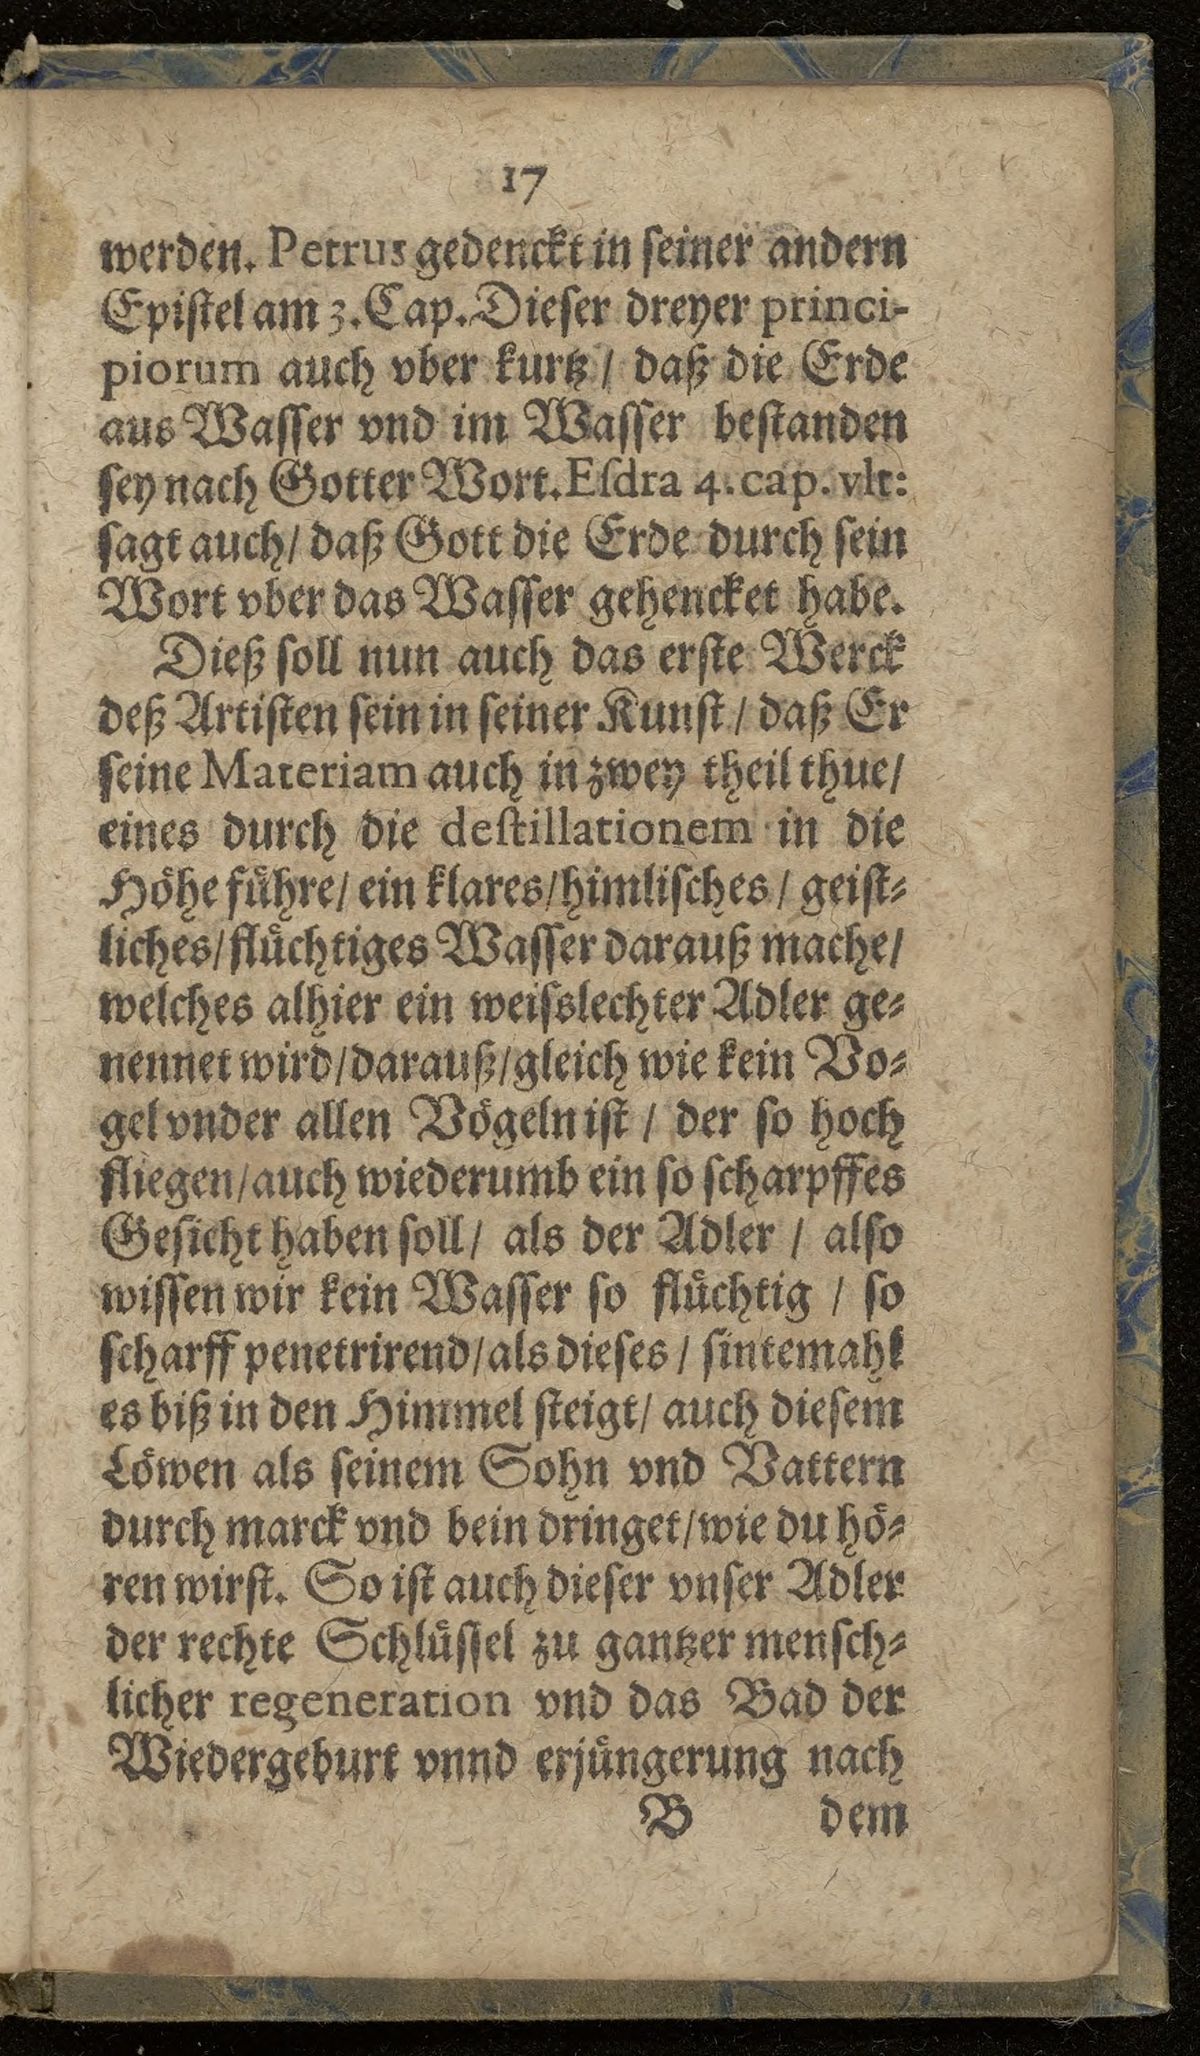 17
werden. Petrus gedenckt in ſeiner andern
Epiſtel am 3. Cap. Dieſer dreyer princi-
piorum auch vber kurtz / daß die Erde
aus Waſſer vnd im Waſſer beſtanden
ſey nach Gotter Wort. Eſdra 4. cap. vlt:
ſagt auch / daß Gott die Erde durch ſein
Wort vber das Waſſer gehencket habe.
Dieß ſoll nun auch das erſte Werck
deß Artiſten ſein in ſeiner Kunſt / daß Er
ſeine Materiam auch in zwey theil thue /
eines durch die deſtillationem in die
Hoͤhe fuͤhre / ein klares / himliſches / geiſt⸗
liches / fluͤchtiges Waſſer darauß mache /
welches alhier ein weiſslechter Adler ge⸗
nennet wird / darauß / gleich wie kein Vo⸗
gel vnder allen Voͤgeln iſt / der ſo hoch
fliegen / auch wiederumb ein ſo ſcharpffes
Geſicht haben ſoll / als der Adler / alſo
wiſſen wir kein Waſſer ſo fluͤchtig / ſo
ſcharff penetrirend / als dieſes / ſintemahl
es biß in den Himmel ſteigt / auch dieſem
Loͤwen als ſeinem Sohn vnd Vattern
durch marck vnd bein dringet / wie du hoͤ⸗
ren wirſt. So iſt auch dieſer vnſer Adler
der rechte Schluͤſſel zu gantzer menſch⸗
licher regeneration vnd das Bad der
Wiedergeburt vnnd erjuͤngerung nach
B dem